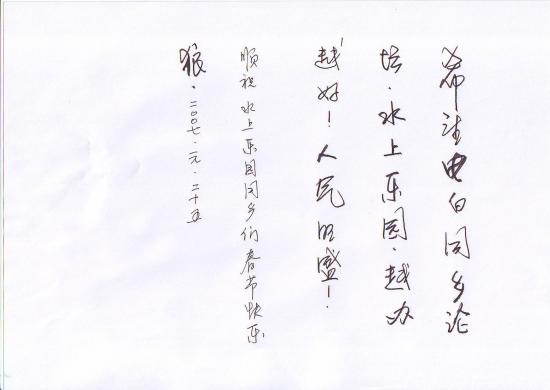 希望电白同乡论
坛·水上乐园·越办
越好！人气旺盛！
顺祝水上乐园同乡们春节快乐
狼·二〇〇七·元·二十五